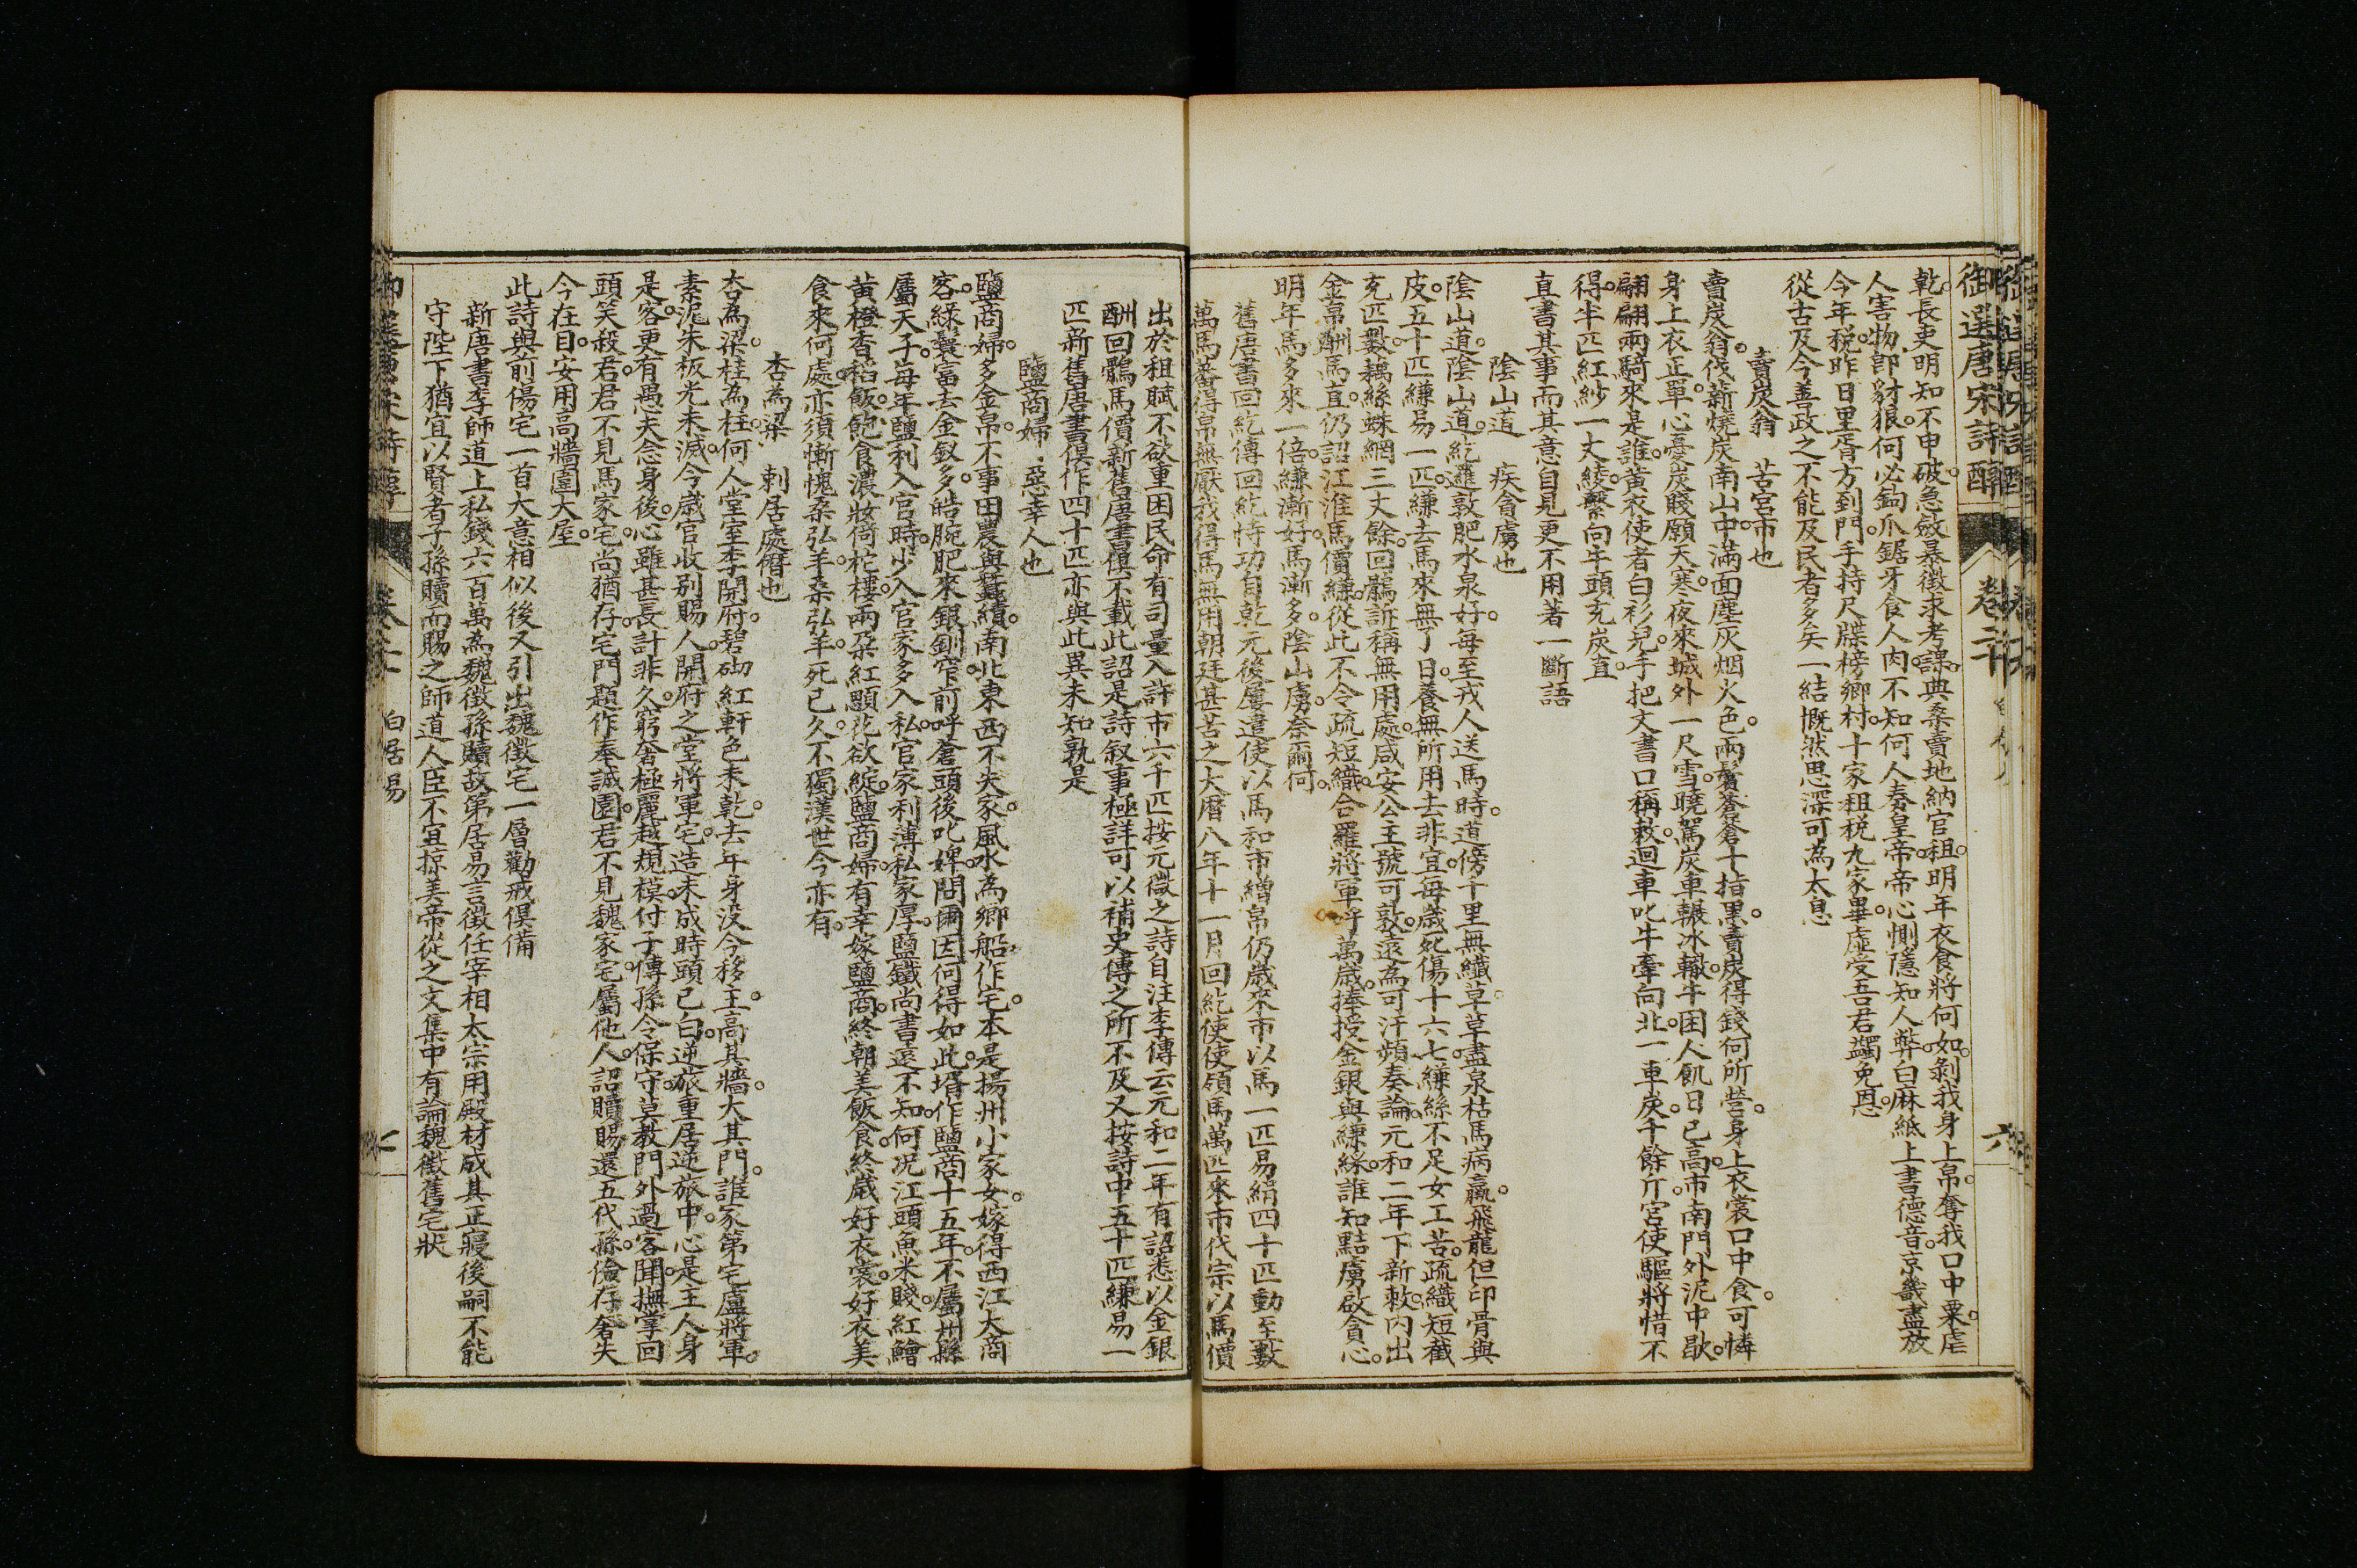 御選唐宋詩醇 卷二十 六
乾長吏明知不申破急斂暴徵求考課典桑賣地納官租明年衣食將何如剝我身上帛奪我口中粟虐
人害物卽豺狼何必鉤爪鋸牙食人肉不知何人奏皇帝帝心惻隱知人弊白麻紙上書德音京畿盡放
今年税昨日里胥方到門手持尺牒榜鄉村十家租税九家畢虛受吾君蠲免恩
從古及今善政之不能及民者多矣一結慨然思深可為太息
賣炭翁 苦宮市也
賣炭翁伐薪燒炭南山中滿面塵灰烟火色兩鬢蒼蒼十指黑賣炭得錢何所營身上衣裳口中食可憐
身上衣正單心憂炭賤願天寒夜來城外一尺雪曉駕炭車輾冰轍牛困人飢日已高市南門外泥中歇
翩翩兩騎來是誰黃衣使者白衫兒手把文書口稱敕迴車叱牛牽向北一車炭千餘斤宮使驅將惜不
得半匹紅紗一丈綾繫向牛頭充炭直
直書其事而其意自見更不用著一斷語
陰山道 疾貪虜也
陰山道陰山道紇邏敦肥水泉好每至戎人送馬時道傍千里無纖草草盡泉枯馬病羸飛龍但印骨與
皮五十匹縑易一匹縑去馬來無了日養無所用去非宜每歲死傷十六七縑絲不足女工苦疏織短截
充匹數藕絲蛛網三丈餘回鶻訴稱無用處咸安公主號可敦遠為可汗頻奏論元和二年下新敕內出
金帛酬馬直仍詔江淮馬價縑從此不令疏短織合羅將軍呼萬歲捧授金銀與縑綵誰知黠虜啟貪心
明年馬多來一倍縑漸好馬漸多陰山虜奈爾何
舊唐書回紇傳回紇恃功自乾元後屢遣使以馬和市繒帛仍歲來市以馬一匹易絹四十匹動至數
萬馬蕃得帛無厭我得馬無用朝廷甚苦之大曆八年十一月回紇使使領馬萬匹來市代宗以馬價
出於租賦不欲重困民命有司量入許市六千匹按元微之詩自注李傳云元和二年有詔悉以金銀
酬回鶻馬價新舊唐書俱不載此詔是詩叙事極詳可以補史傳之所不及又按詩中五十匹縑易一
匹新舊唐書俱作四十匹亦與此異未知孰是
鹽商婦 惡幸人也
鹽商婦多金帛不事田農與蠶績南北東西不失家風水為鄉船作宅本是揚州小家女嫁得西江大商
客綠鬟富去金釵多皓腕肥來銀釧窄前呼蒼頭後叱婢問爾因何得如此壻作鹽商十五年不屬州縣
屬天子每年鹽利入官時少入官家多入私官家利薄私家厚鹽鐵尚書遠不知何況江頭魚米賤紅鱠
黃橙香稻飯飽食濃妝倚柁樓兩朶紅顋花欲綻鹽商婦有幸嫁鹽商終朝美飯食終歲好衣裳好衣美
食來何處亦須慚愧桑弘羊桑弘羊死已久不獨漢世今亦有
杏為梁 刺居處僭也
杏為梁桂為柱何人堂室李開府碧砌紅軒色未乾去年身没今移主高其牆大其門誰家第宅盧將軍
素泥朱板光未滅今歲官收別賜人開府之堂將軍宅造未成時頭已白逆旅重居逆旅中心是主人身
是客更有愚夫念身後心雖甚長計非久窮奢極麗越規模付子傳孫令保守莫教門外過客聞撫掌回
頭笑殺君君不見馬家宅尚猶存宅門題作奉誠園君不見魏家宅屬他人詔贖賜還五代孫儉存奢失
今在目安用高牆圍大屋
此詩與前傷宅一首大意相似後又引出魏徵宅一層勸戒俱備
新唐書李師道上私錢六百萬為魏徵孫贖故第居易言徵任宰相太宗用殿材成其正寢後嗣不能
守陛下猶宜以賢者子孫贖而賜之師道人臣不宜掠美帝從之文集中有論魏徵舊宅狀
白居易